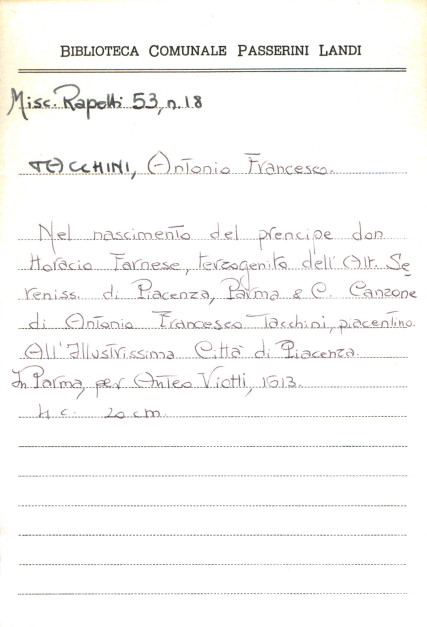 BIBLIOTECA COMUNALE PASSERINI LANDI
Misc. Rapetti 53, n. 18
TACCHINI, Antonio Francesco.
Nel nascimento del prencipe don
Horacio Farnese, terzogenito dell'Alt. Se
reniss. di Piacenza, Parma & C. Canzone
di Antonio Francesco Tacchini, piacentino.
All'Illustrissima Città di Piacenza.
In Parma, per Anteo Viotti, 1613.
4 c. 20 cm.